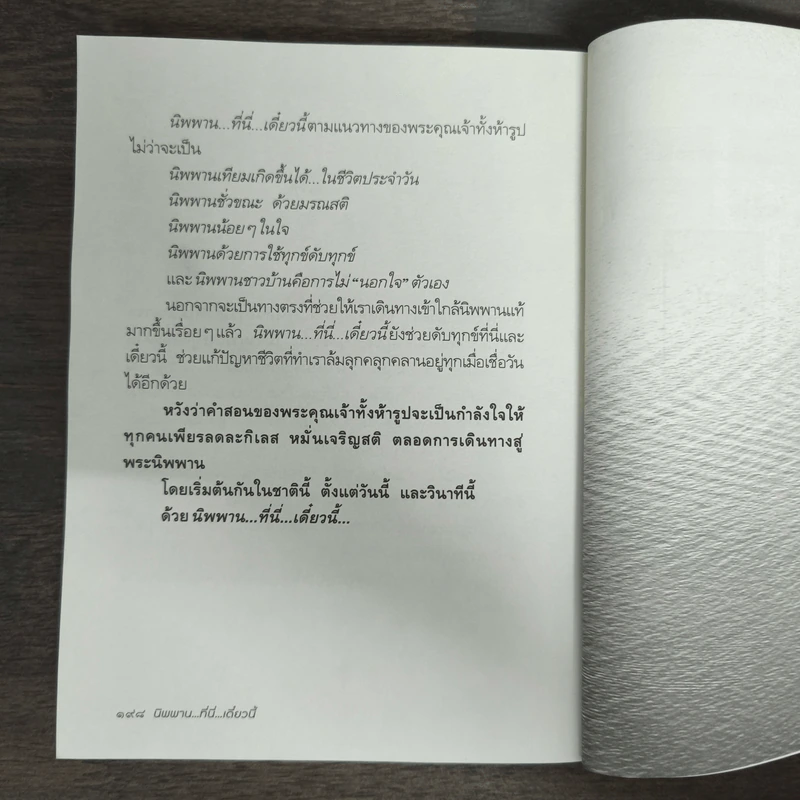 นิพพาน...ที่นี่...เดี๋ยวนี้ ตามแนวทางของพระคุณเจ้าทั้งห้ารูป
ไม่ว่าจะเป็น
นิพพานเทียมเกิดขึ้นได้...ในชีวิตประจำวัน
นิพพานชั่วขณะ ด้วยมรณสติ
นิพพานน้อยๆ ในใจ
นิพพานด้วยการใช้ทุกข์ดับทุกข์
และ นิพพานชาวบ้านคือการไม่ “นอกใจ” ตัวเอง
นอกจากจะเป็นทางตรงที่ช่วยให้เราเดินทางเข้าใกล้นิพพานแท้
มากขึ้นเรื่อยๆ แล้ว นิพพาน...ที่นี่...เดี๋ยวนี้ ยังช่วยดับทุกข์ที่นี่และ
เดี๋ยวนี้ ช่วยแก้ปัญหาชีวิตที่ทำเราล้มลุกคลุกคลานอยู่ทุกเมื่อเชื่อวัน
ได้อีกด้วย
หวังว่าคำสอนของพระคุณเจ้าทั้งห้ารูปจะเป็นกำลังใจให้
ทุกคนเพียรลดละกิเลส หมั่นเจริญสติ ตลอดการเดินทางสู่
พระนิพพาน
โดยเริ่มต้นกันในชาตินี้ ตั้งแต่วันนี้ และวินาทีนี้
ด้วย นิพพาน...ที่นี่...เดี๋ยวนี้...
๑๙๘ นิพพาน...ที่นี่...เดี๋ยวนี้